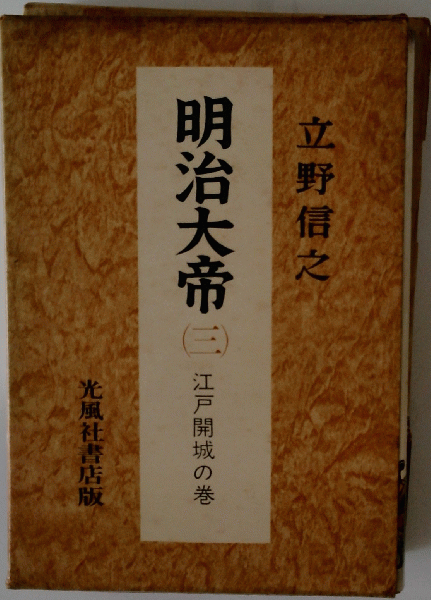 立野信之
明治大帝
(三)
江戸開城の巻
光風社書店版